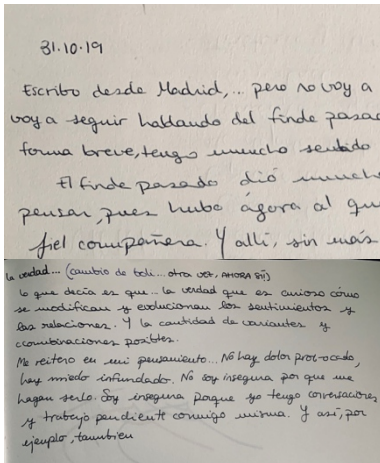 31.10.19
Escribo desde Madrid,... pero no voy a
voy a seguir hablando del finde pasad
forma breve, tengo mucho sentido
El finde pasado dió much
pensar, pues hubo ágora al qu
fiel compañera. Y allí, sin más
la verdad... (cambio de boli... otra vez, AHORA SÍ!)
lo que decía es que... la verdad que es curioso cómo
se modifican y evolucionan los sentimientos y
las relaciones. Y la cantidad de variantes y
combinaciones posibles.
Me reitero en mi pensamiento... No hay dolor provocado,
hay miedo infundado. No soy insegura por que me
hagan serlo. Soy insegura porque yo tengo conversaciones
y trabajo pendiente conmigo misma. Y así, por
ejemplo, tambien